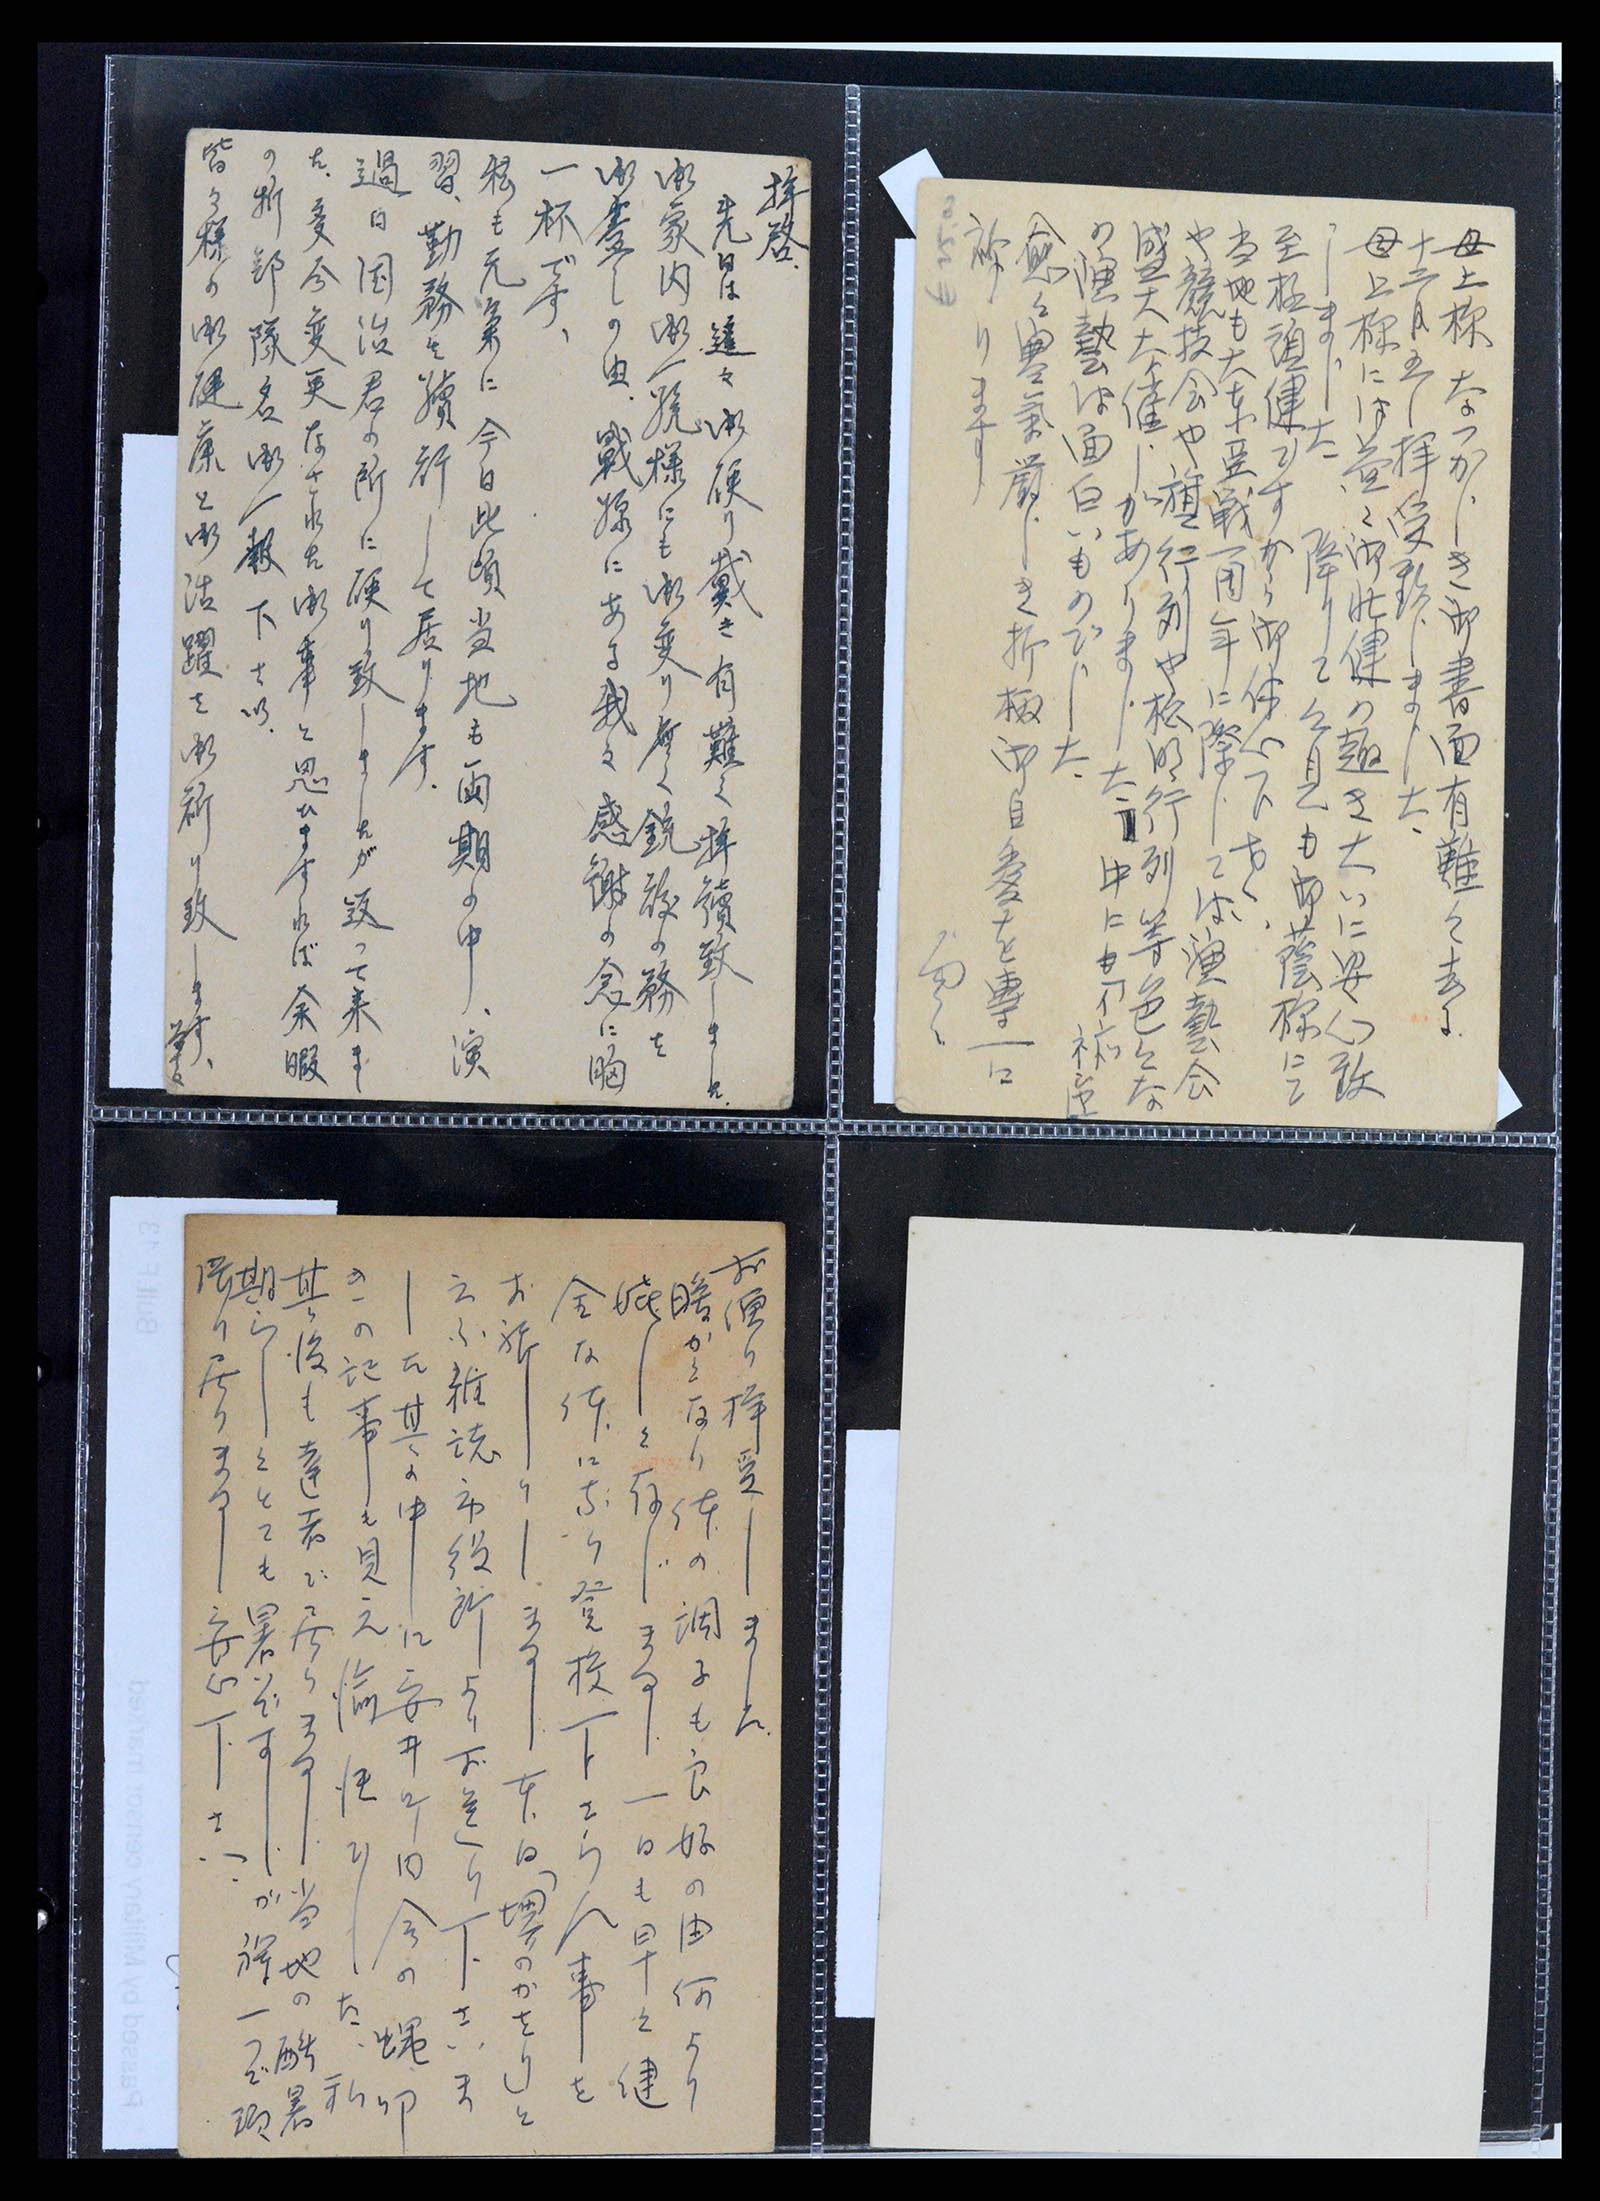 拝啓、
先日は達々御便り戴き有難く拝読致しました.
御家内御一統様にも御変り無く銃後の務を
御盡しの由、戦線にある我々感謝の念に胸
一杯です、
私も元気に今日此頃当地も雨期の中、演
習、勤務を續行して居ります.
過日国治君の所に便り致しましたが返って来ま
た、多分変更なされた御事と思ひますれば余暇
の折部隊名御一報下さい.
皆々様の御健康と御活躍を御祈り致します、
母上様 なつかしき御書面有難く去る
十二月五日拝受致しました、
母上様には益々御壮健の趣き大いに安心致
しました 降りて公見も御蔭様にて
至極頑健ですから御休心下さい、
当地も大東亜戦一周年に際しては演藝会
や競技会や旗行列や松明行列等色々な
盛大な催しがありました 中にも
の演藝は面白いものでした、
愈々寒気厳しき折柄御自愛を専一に
祈ります
お便り拝受しました.
暖かくなり体の調子も良好の由何より
嬉しく存じます 一日も早く健
全な体になり登校下さらん事を
お祈りします 本日「堺のかをり」と
云ふ雑誌市役所よりお送り下さいま
した其の中に安井町内会の蝿卵
の記事も見え愉快でした、私
其の後も達者で居ります 当地の酷暑
期らしくとても暑いですが 一つ頑
張り居ります 安心下さい.
Built F13
Passed by Military censor marked